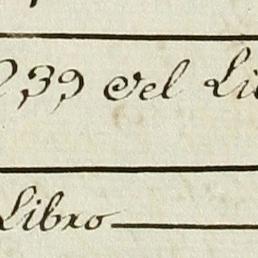 239 del Li
Libro